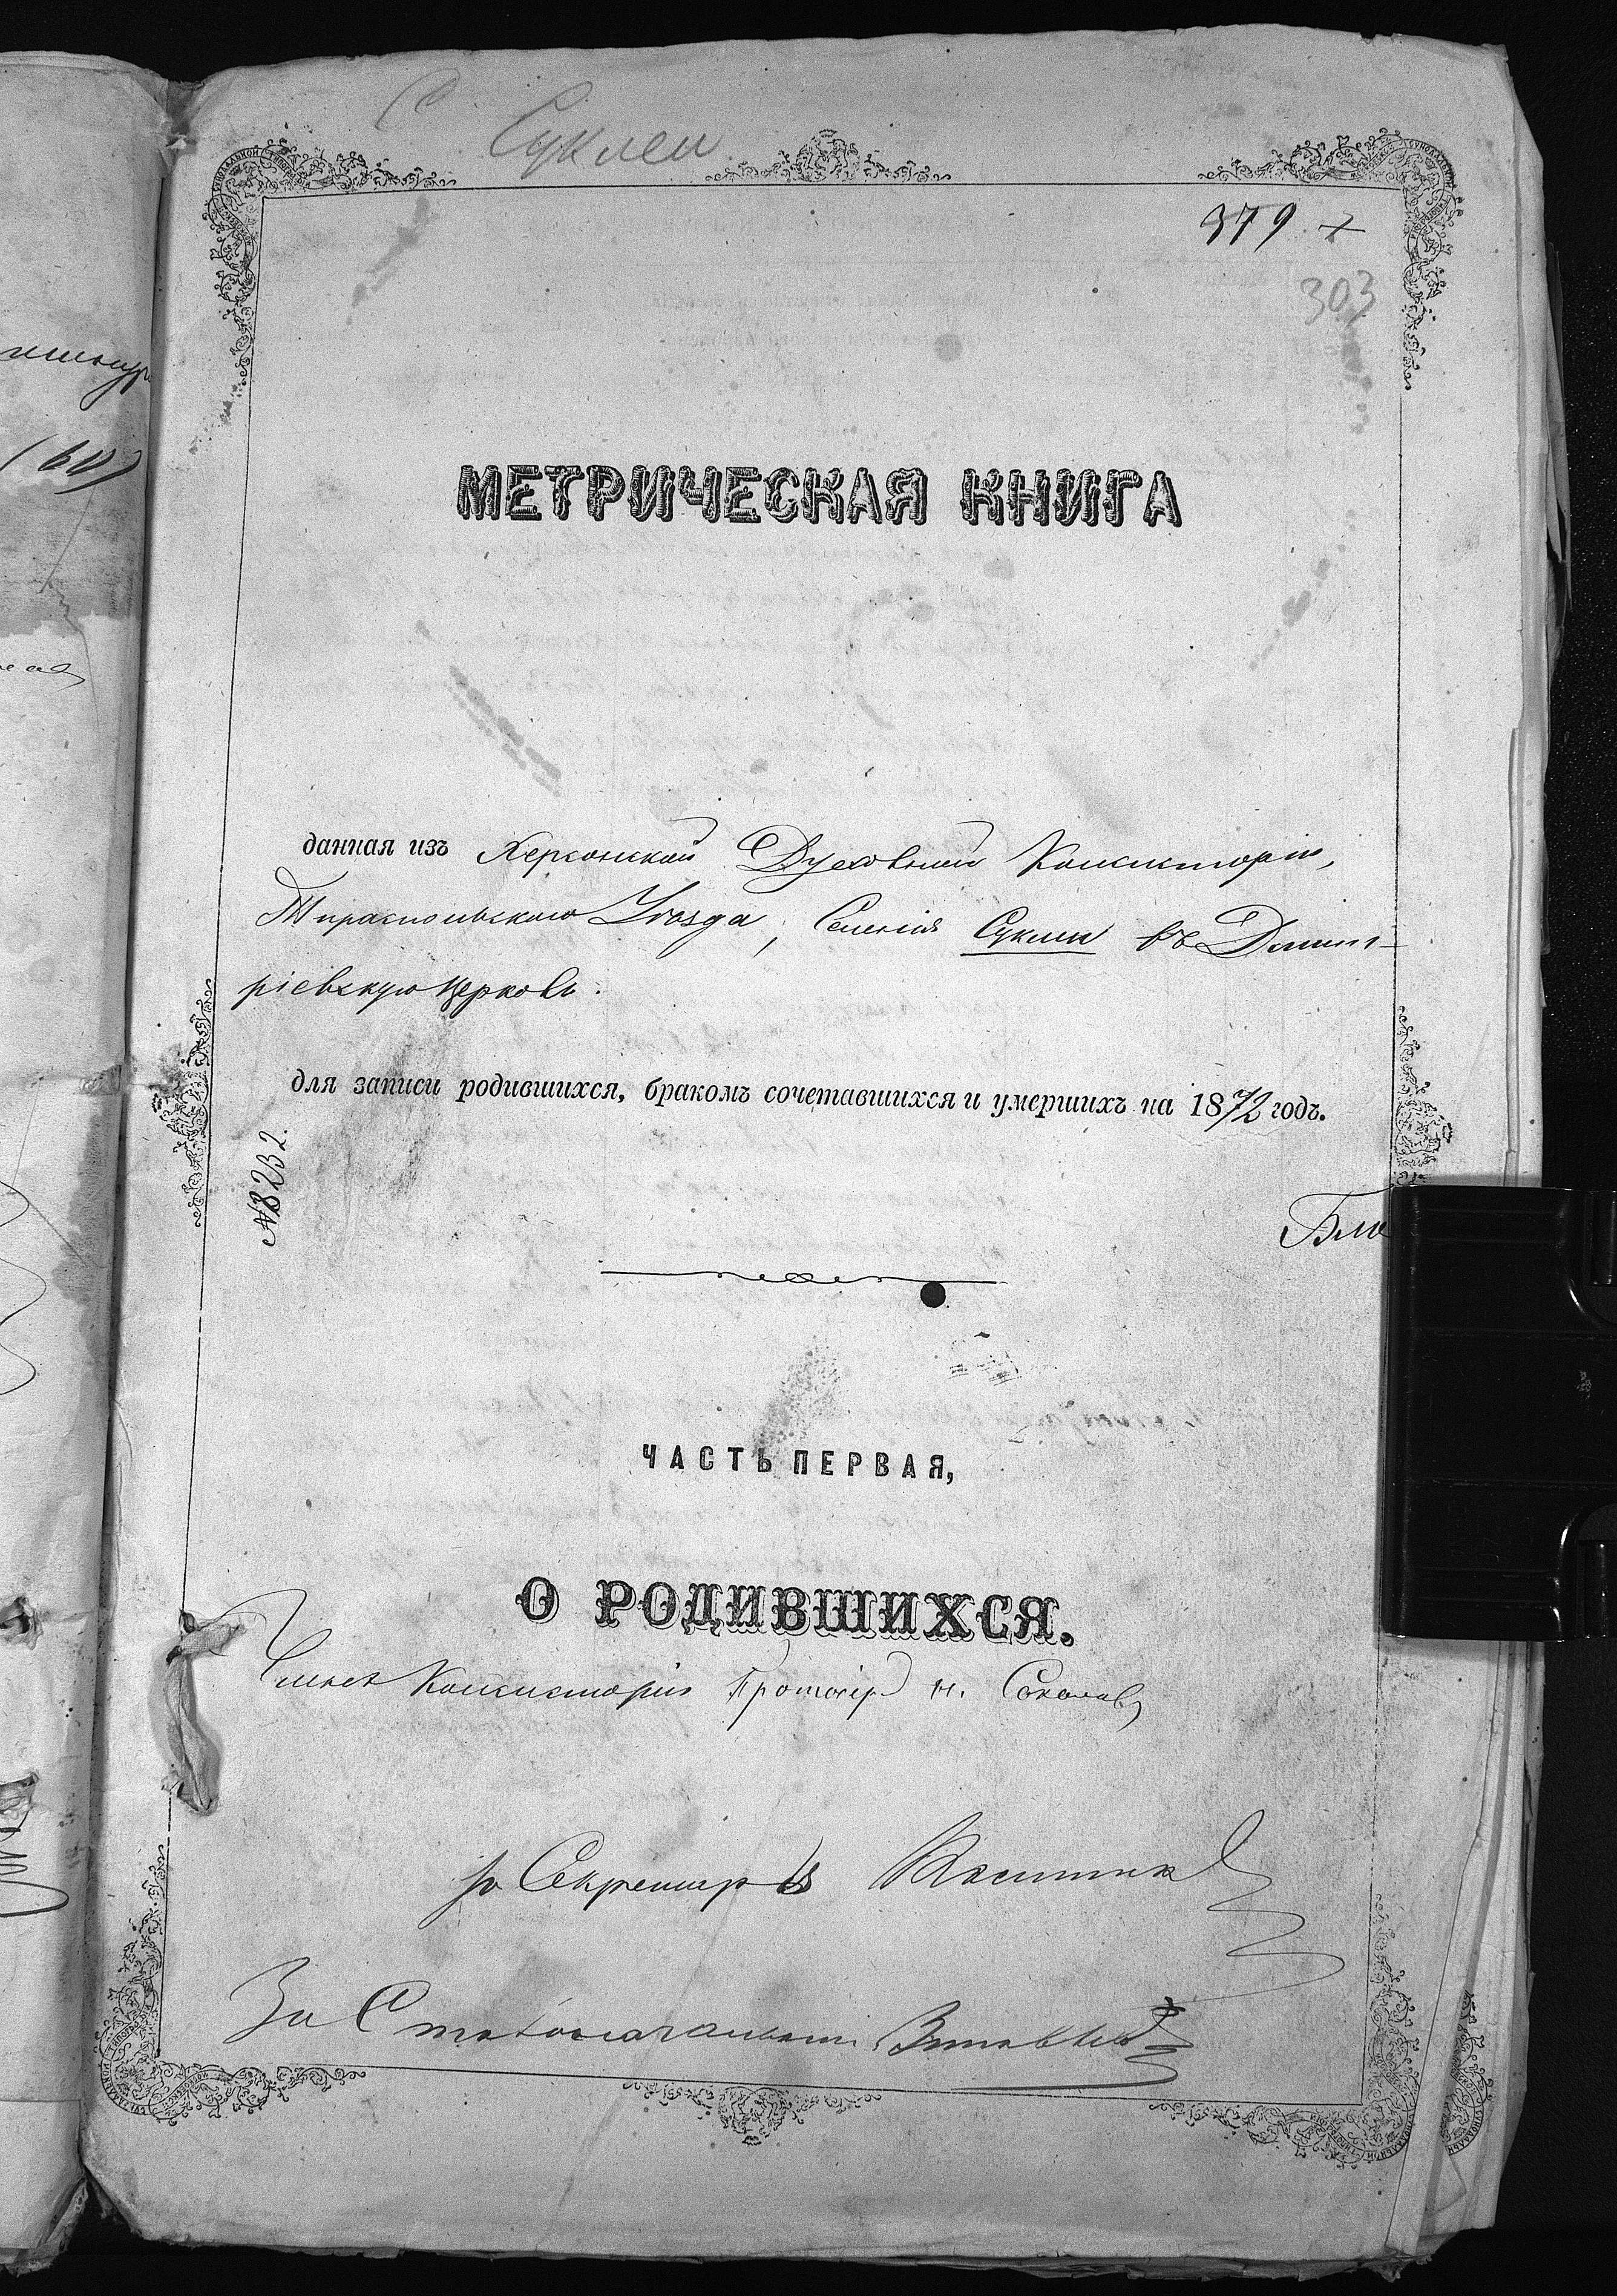 С Суклеи
379
303
МЕТРИЧЕСКАЯ КНИГА
данная изъ Херсонской Духовной Консисторіи,
Тираспольскаго Уѣзда, Селенія Суклеи въ Дмит-
ріевскую церковь.
для записи родившихся, бракомъ сочетавшихся и умершихъ на 1872 годъ.
№ 8232.
ЧАСТЬ ПЕРВАЯ,
О РОДИВШИХСЯ.
Членъ Консисторіи Протоіер. Н. Соколовъ
Секретарь
За Столоначальника